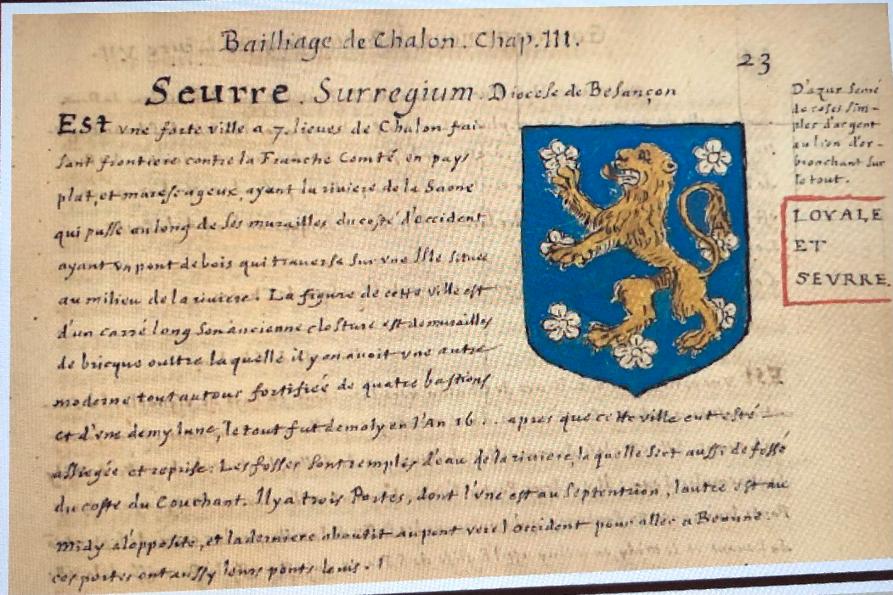 Bailliage de Chalon. Chap. III.
23
Seurre. Surregium. Diocese de Besançon
Est vne forte ville a 7. lieues de Chalon fai-
sant frontiere contre la Franche Comté, en pays
plat, et marescageux, ayant la riviere de la Saone
qui passe au long de ses murailles du costé d'occident
ayant vn pont de bois qui traverse sur vne Isle située
au milieu de la riviere. La figure de cette ville est
d'un carré long son ancienne closture est de murailles
de bricque oultre laquelle il y en avoit vne autre
moderne tout autour fortifiée de quatre bastions
et d'vne demy lune, le tout fut demoly en l'An 16 . . apres que cette ville eut esté
assiegée et reprise. Les fossez sont remplis d'eau de la riviere, laquelle sert aussi de fossé
du coste du Couchant. Il y a trois Portes, dont l'vne est au Septentrion, l'autre est au
Midy a l'opposite, et la derniere aboutit au pont vers l'occident pour aller a Beaune.
ces portes ont aussy leurs ponts leuis.
D'azur semé
de roses sim-
ples d'argent
au lion d'or
bronchant sur
le tout.
LOYALE
ET
SEVRRE.